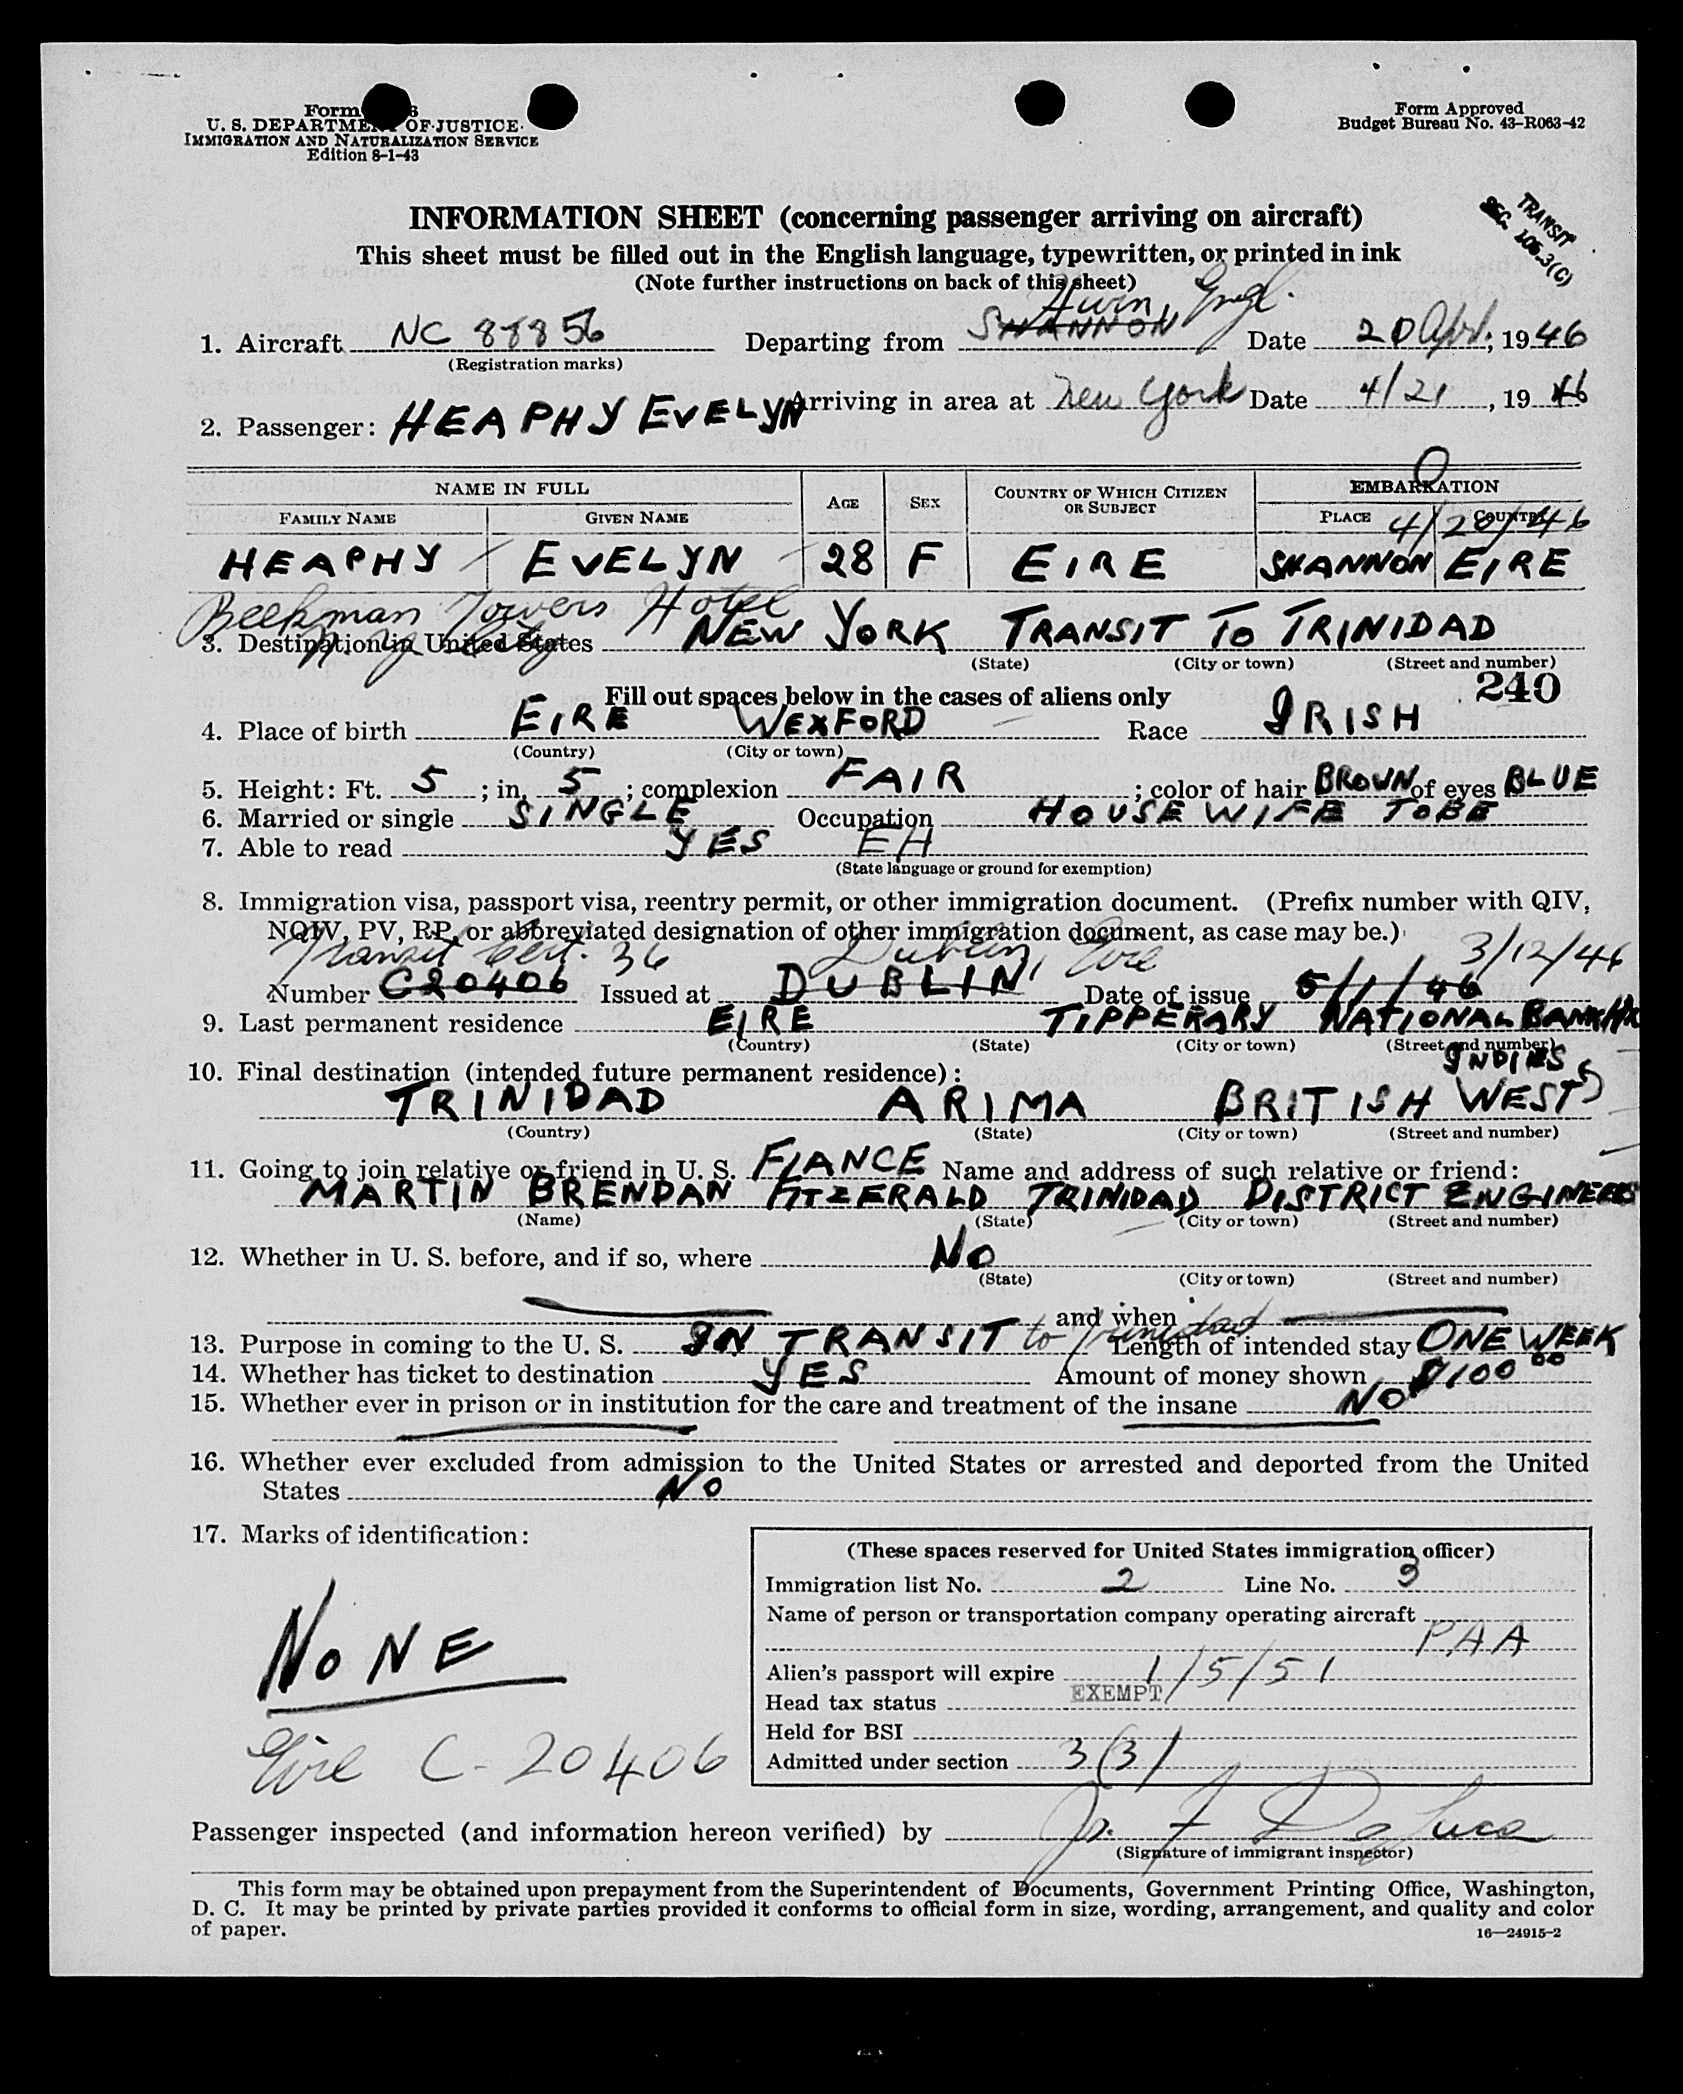 Form
U. S. DEPARTMENT OF JUSTICE
IMMIGRATION AND NATURALIZATION SERVICE
Edition 8-1-43
Form Approved
Budget Bureau No. 43-R063-42
TRANSIT
SEC. 105.3(C)
INFORMATION SHEET (concerning passenger arriving on aircraft)
This sheet must be filled out in the English language, typewritten, or printed in ink
(Note further instructions on back of this sheet)
Hurn, Engl.
1. Aircraft NC 88856 Departing from SHANNON Date 20 Apr., 1946
(Registration marks)
Arriving in area at New York Date 4/21, 1946
2. Passenger: HEAPHY EVELYN
NAME IN FULL AGE SEX COUNTRY OF WHICH CITIZEN OR SUBJECT EMBARKATION
FAMILY NAME GIVEN NAME PLACE COUNTRY
4/20/46
HEAPHY EVELYN 28 F EIRE SHANNON EIRE
Beekman Towers Hotel
N.Y. City
3. Destination in United States NEW YORK TRANSIT TO TRINIDAD
(State) (City or town) (Street and number)
240
Fill out spaces below in the cases of aliens only
4. Place of birth EIRE WEXFORD Race IRISH
(Country) (City or town)
5. Height: Ft. 5; in. 5; complexion FAIR; color of hair BROWN of eyes BLUE
6. Married or single SINGLE Occupation HOUSE WIFE TO BE
7. Able to read YES EH
(State language or ground for exemption)
8. Immigration visa, passport visa, reentry permit, or other immigration document. (Prefix number with QIV,
NQIV, PV, RP, or abbreviated designation of other immigration document, as case may be.)
Transit Cert. 36 Dublin, Eire 3/12/46
Number C20406 Issued at DUBLIN Date of issue 5/1/46
9. Last permanent residence EIRE TIPPERARY NATIONAL BANK
(Country) (State) (City or town) (Street and number)
10. Final destination (intended future permanent residence):
INDIES
TRINIDAD ARIMA BRITISH WEST
(Country) (State) (City or town) (Street and number)
11. Going to join relative or friend in U. S. FIANCE Name and address of such relative or friend:
MARTIN BRENDAN FITZERALD TRINIDAD DISTRICT ENGINEERS
(Name) (State) (City or town) (Street and number)
12. Whether in U. S. before, and if so, where NO
(State) (City or town) (Street and number)
and when
13. Purpose in coming to the U. S. IN TRANSIT to Trinidad Length of intended stay ONE WEEK
14. Whether has ticket to destination YES Amount of money shown $100 00
15. Whether ever in prison or in institution for the care and treatment of the insane NO
16. Whether ever excluded from admission to the United States or arrested and deported from the United
States NO
17. Marks of identification:
NONE
Eire C-20406
(These spaces reserved for United States immigration officer)
Immigration list No. 2 Line No. 3
Name of person or transportation company operating aircraft
PAA
Alien's passport will expire 1/5/51
Head tax status EXEMPT
Held for BSI
Admitted under section 3(3)
Passenger inspected (and information hereon verified) by
(Signature of immigrant inspector)
This form may be obtained upon prepayment from the Superintendent of Documents, Government Printing Office, Washington,
D. C. It may be printed by private parties provided it conforms to official form in size, wording, arrangement, and quality and color
of paper.
16—24915-2